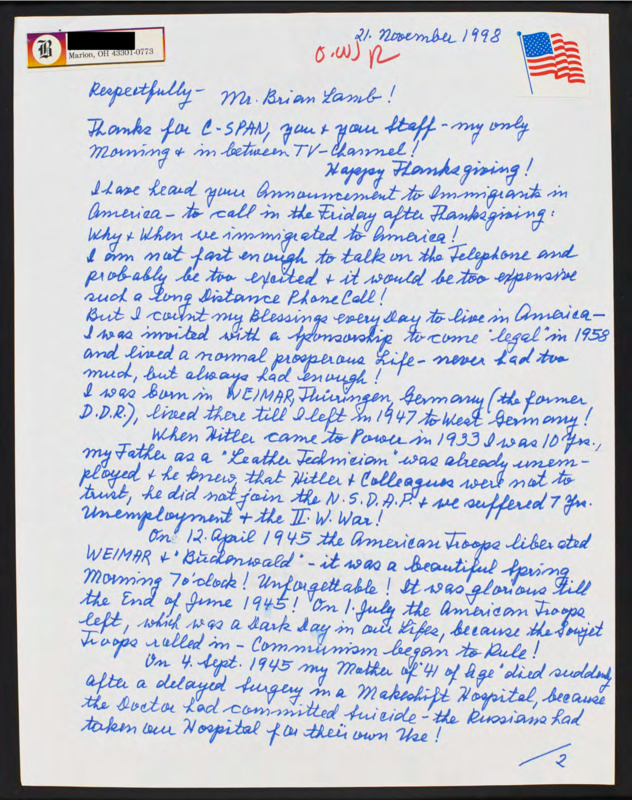 21. November 1998
B
Marion, OH 43301-0773
O.W)
Respectfully - Mr. Brian Lamb!
Thanks for C-SPAN, you + your Staff - my only
Morning + in between TV-Channel!
Happy Thanksgiving!
I have heard your Announcement to Immigrants in
America - to call in the Friday after Thanksgiving:
Why + When we immigrated to America!
I am not fast enough to talk on the Telephone and
probably be too excited + it would be too expensive
such a long Distance Phone Call!
But I count my Blessings every Day to live in America -
I was invited with a Sponsorship to come "legal" in 1958
and lived a normal prosperous Life - never had too
much, but always had enough!
I was born in WEIMAR, Thüringen, Germany (the former
D.D.R.), lived there till I left in 1947 to West Germany!
When Hitler came to Power in 1933 I was 10 Yrs.,
my Father as a "Leather Technician" was already unem-
ployed + he knew, that Hitler + Colleagues were not to
trust, he did not join the N.S.D.A.P. + we suffered 7 Yrs.
Unemployment + the II. W. War!
On 12. April 1945 the American Troops liberated
WEIMAR + "Buchenwald" - it was a beautiful Spring
Morning 7 o'clock! Unforgettable! It was glorious till
the End of June 1945! On 1. July the American Troops
left, which was a Dark Day in our Lifes, because the Sowjet
Troops rolled in - Communism began to Rule!
On 4. Sept. 1945 my Mother of "41 of Age" died suddenly
after a delayed Surgery in a Makeshift Hospital, because
the Doctor had committed Suicide - the Russians had
taken our Hospital for their own Use!
/2